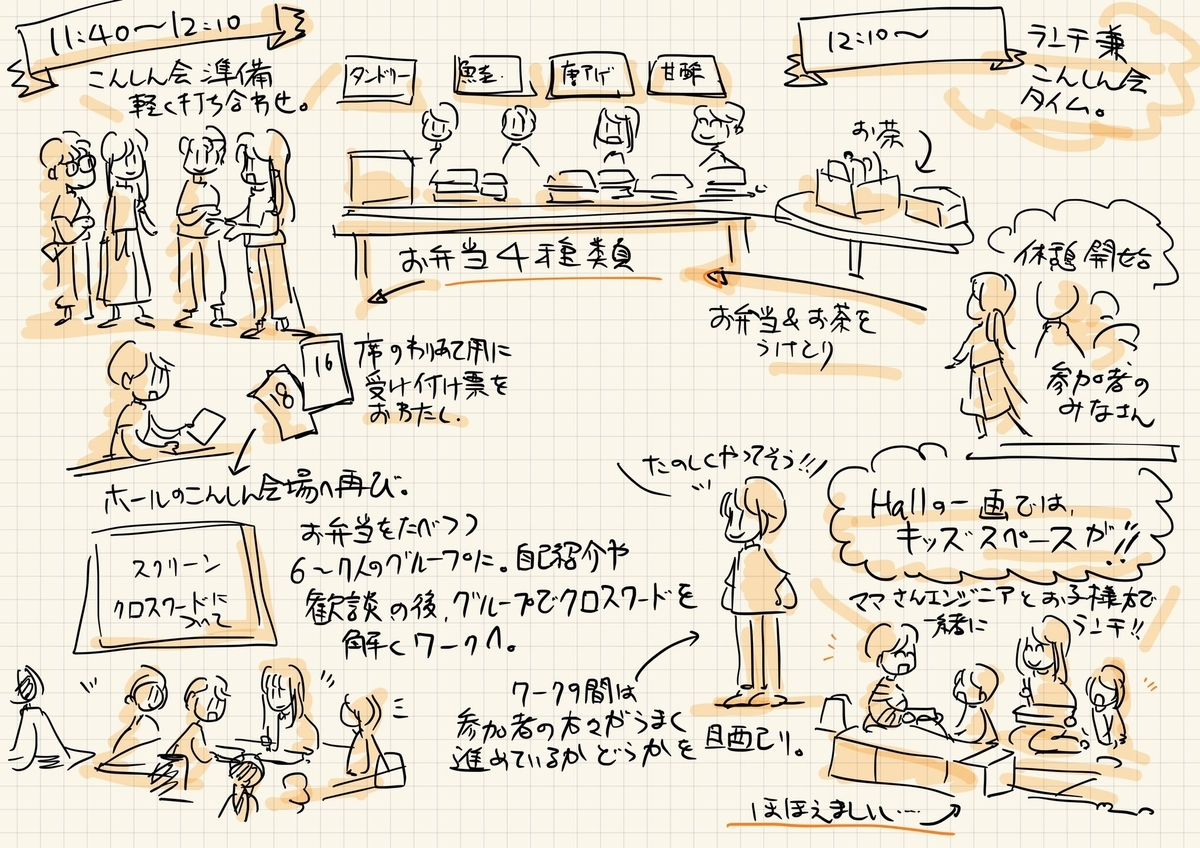 11:40〜12:10
こんしん会準備
軽く打ち合わせ。
タンドリー
鮭
唐アゲ
甘酢
12:10〜
ランチ兼
こんしん会
タイム。
お茶
お弁当4種類
お弁当&お茶を
うけとり
休憩開始
参加者の
みなさん
16
18
席のわりあて用に
受け付け票を
おわたし.
ホールのこんしん会場へ再び。
スクリーン
クロスワードに
ついて
お弁当をたべつつ
6〜7人のグループに。自己紹介や
歓談の後、グループでクロスワードを
解くワークへ。
たのしくやってそう!!
ワークの間は
参加者の方々がうまく
進めているかどうかを目配り。
Hallの一画では、
キッズスペースが!!
ママさんエンジニアとお子様方で
一緒にランチ!!
ほほえましい…